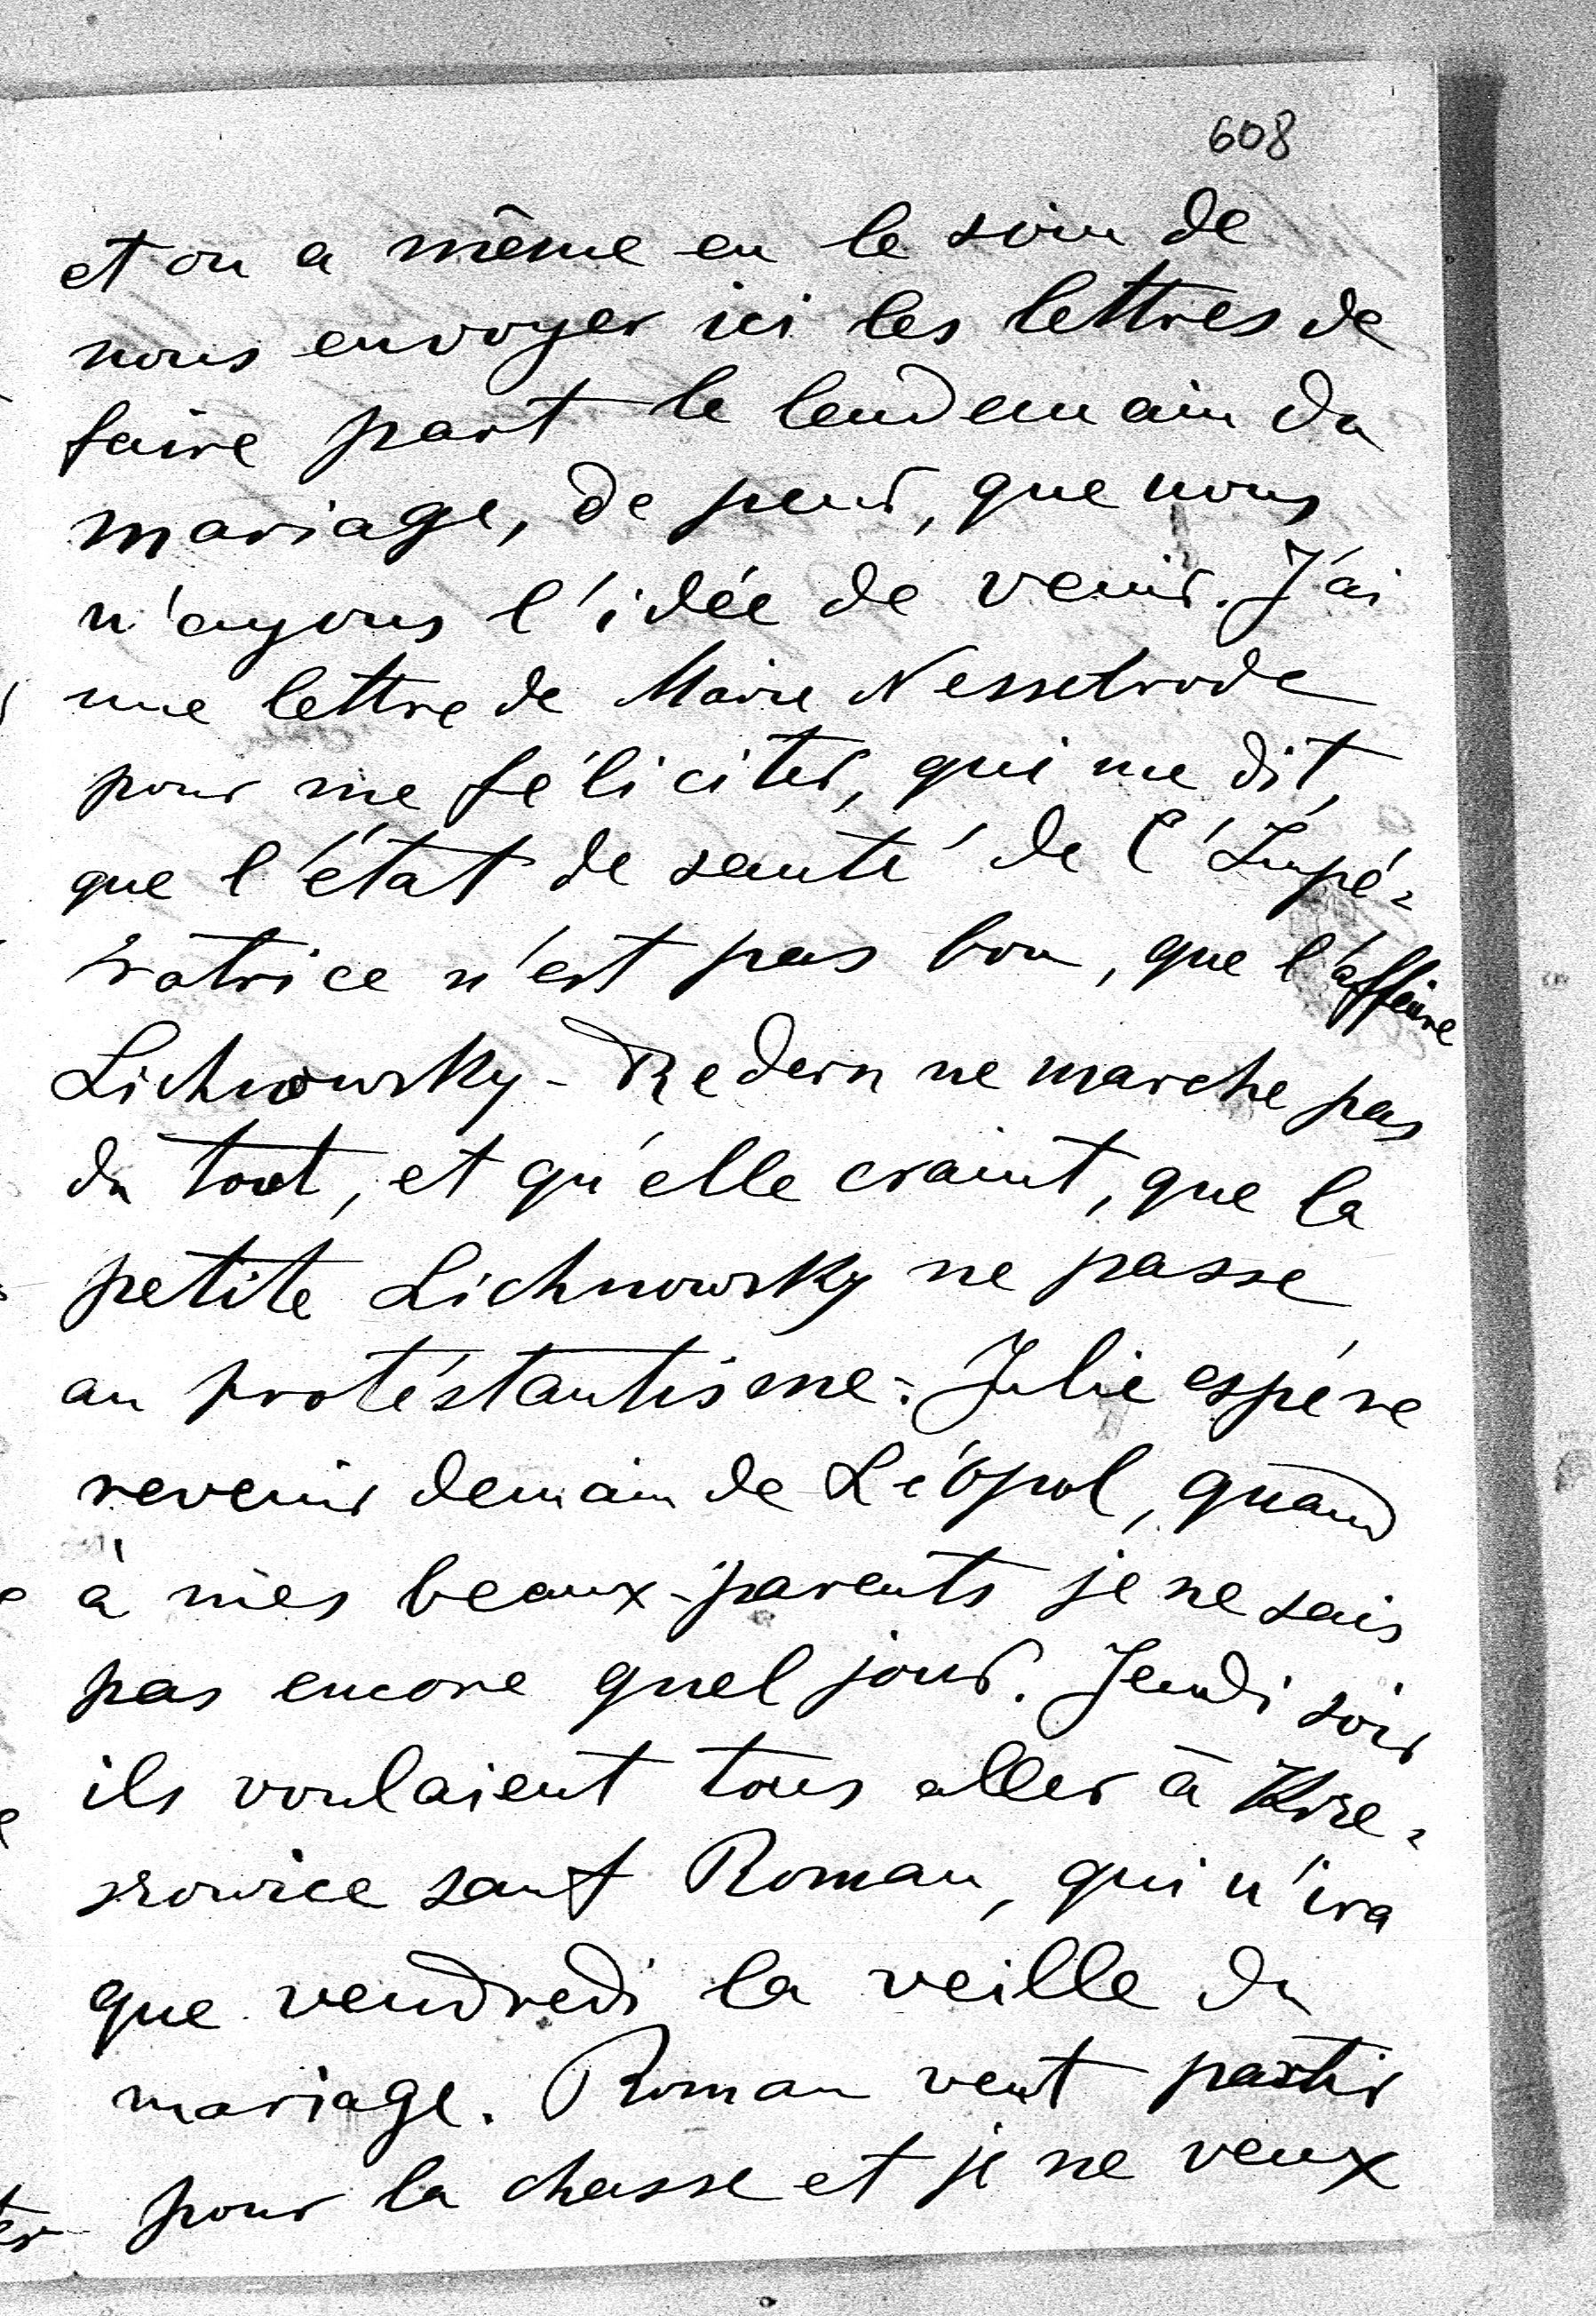 608
et on a même eu le soin de
nous envoyer ici les lettres de
faire part le lendemain du
mariage, de peur, que nous
n'ayons l'idée de venir. J'ai
une lettre de Marie Nesselrode
pour me féliciter, qui me dit,
que l'état de santé de l'Impé=
ratrice n'est pas bon, que l'affaire
Lichnowsky - Redern ne marche pas
du tout, et qu'elle craint, que la
petite Lichnowsky ne passe
au protéstantisme. Julie espére
revenir demain de Léopol, quand
à mes beaux-parents je ne sais
pas encore quel jour. Jeudi soir
ils voulaient tous aller à Krze=
szowice sauf Roman, qui n'ira
que vendredi la veille du
mariage. Roman veut partir
pour la chasse et je ne veux